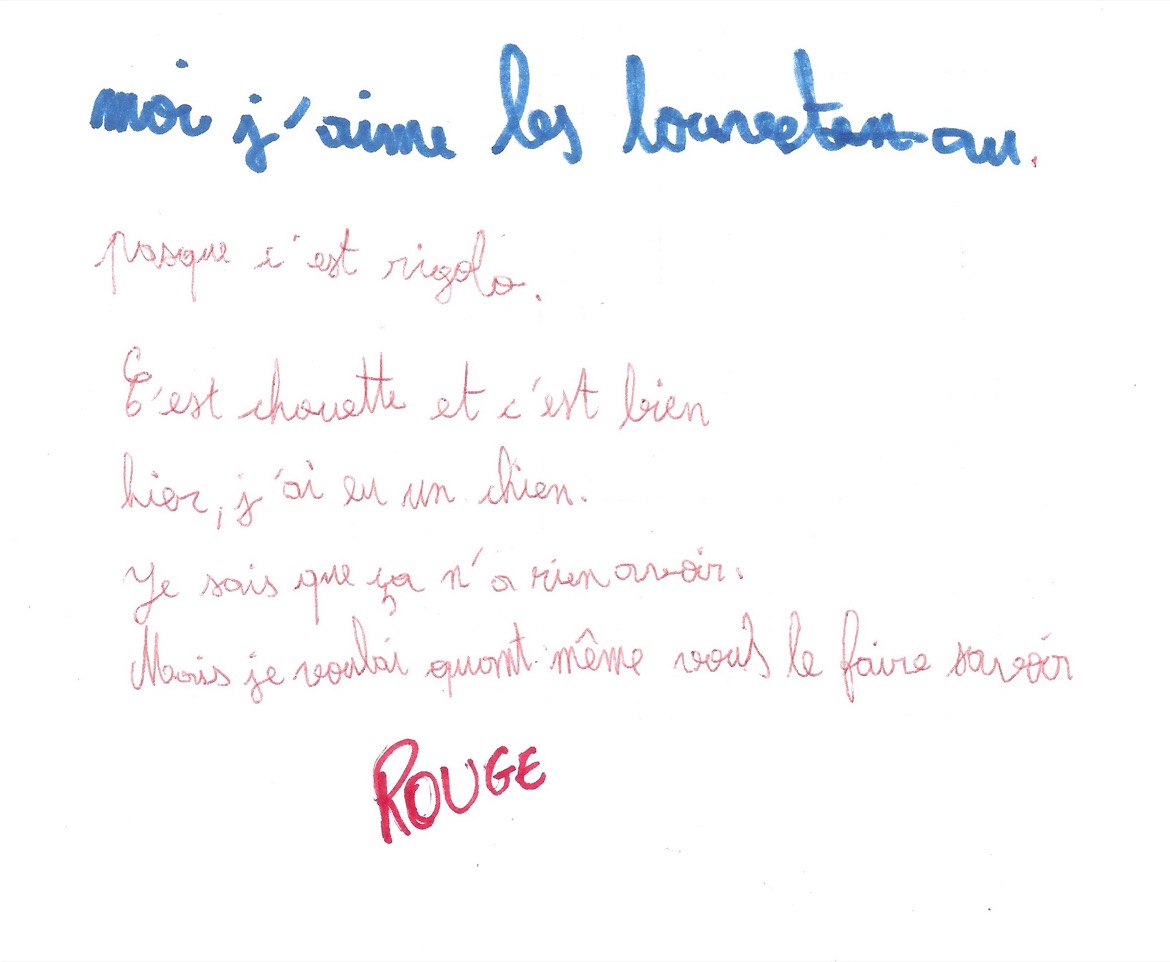 moi j'aime les louveteau au.
pasque c'est rigolo.
C'est chouette et c'est bien
hier, j'ai eu un chien.
Je sais que ça n'a rien avoir.
Mais je voulai quant même vous le faire savoir
ROUGE